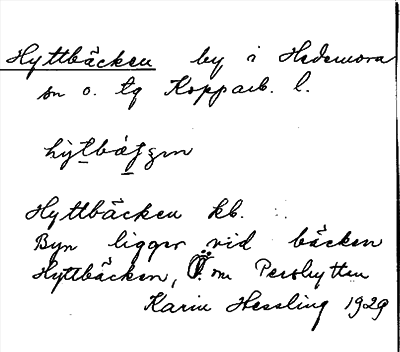 Hyttbäcken by i Hedemora
sn o. tg Kopparb. l.
hỳtbáʃʒen
Hyttbäcken kb.
Byn ligger vid bäcken
Hyttbäcken, Ö. om Pershyttan
Karin Hessling 1929